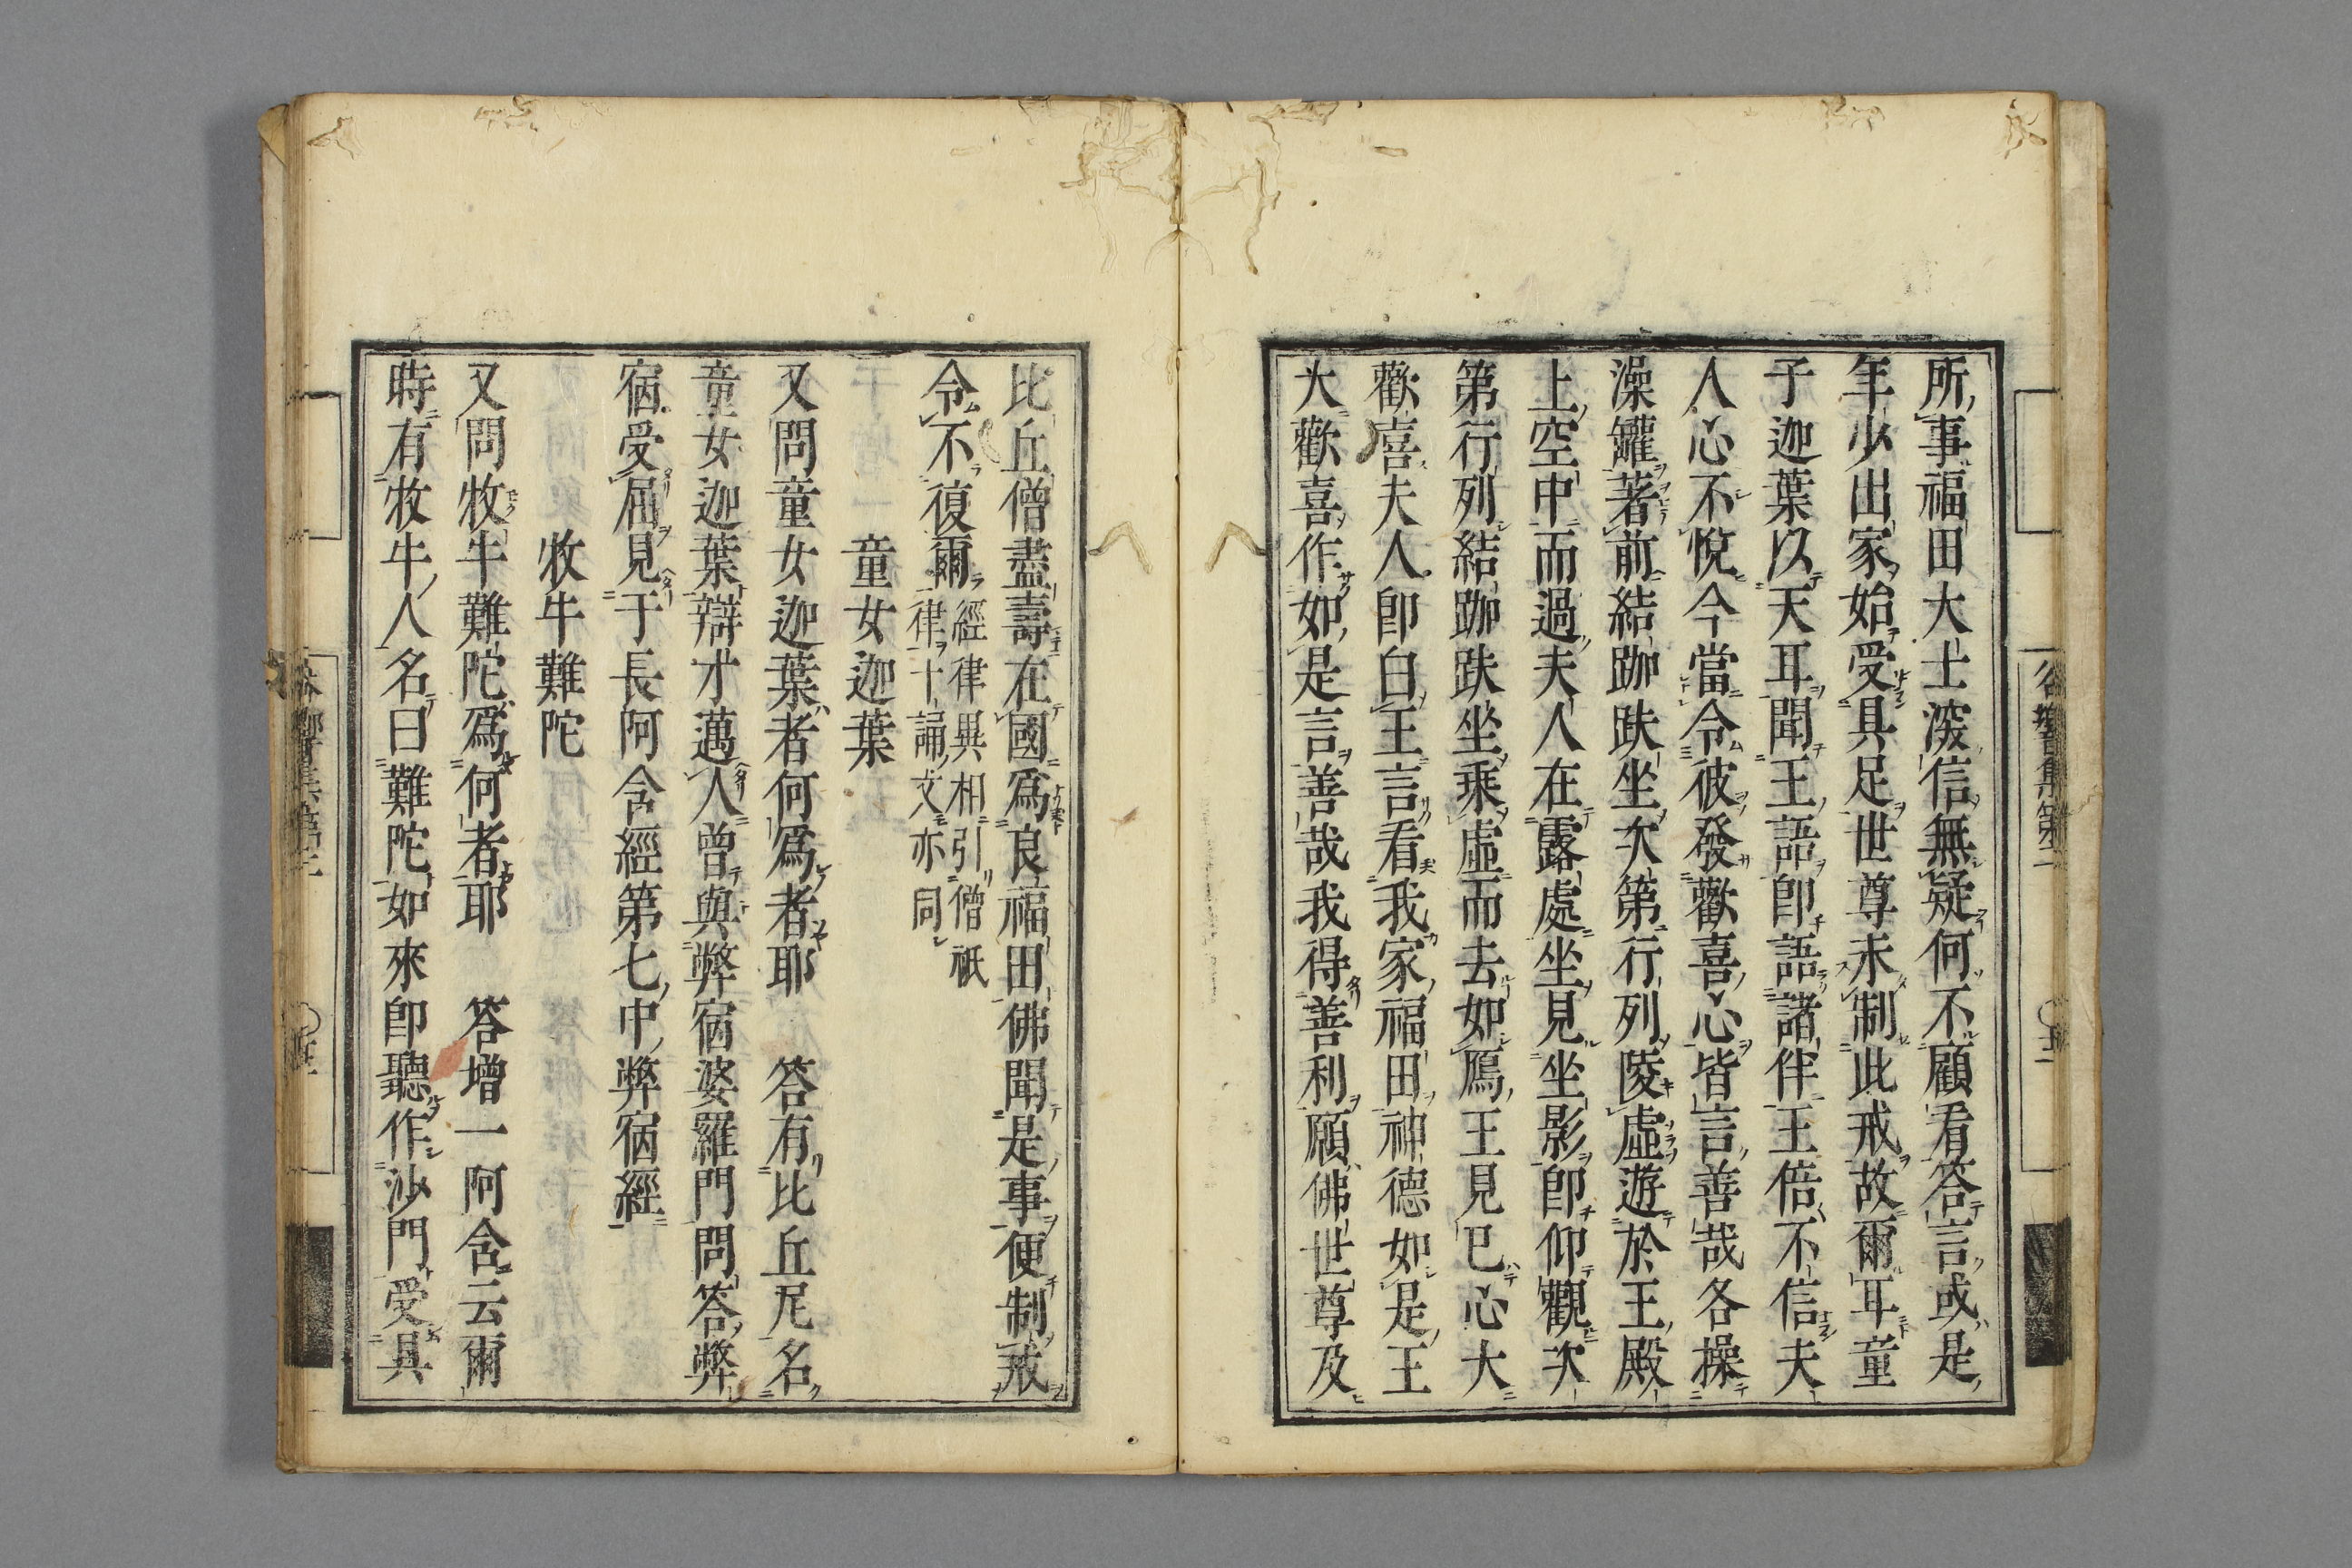 所事福田大士深信無疑何不顧看答言或是
年少出家始受具足世尊未制此戒故爾耳童
子迦葉以天耳聞王語即語諸伴王倍不信夫
人心不悅今當令彼發歡喜心皆言善哉各操
澡罐著前結跏趺坐次第行列陵虛遊於王殿
上空中而過夫人在露處坐見坐影即仰觀次
第行列結跏趺坐乘虛而去如鴈王見已心大
歡喜夫人即白王言看我家福田神德如是王
大歡喜作如是言善哉我得善利願佛世尊及
比丘僧盡壽在國爲良福田佛聞是事便制戒
令不復爾經律異相引僧祇
律十誦文亦同
童女迦葉
又問童女迦葉者何爲者耶　答有比丘尼名
童女迦葉辯才邁人曾與弊宿婆羅門問答弊
宿受屈見于長阿含經第七中弊宿經
牧牛難陀
又問牧牛難陀爲何者耶　答增一阿含云爾
時有牧牛人名曰難陀如來即聽作沙門受具
谷響集第二